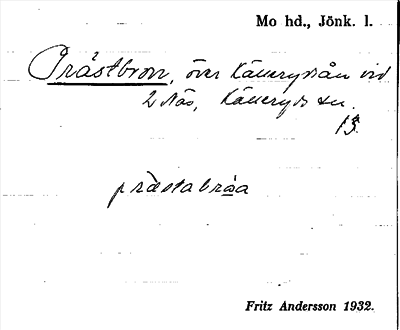 Mo hd., Jönk. l.
Prästbron, över Källerydsån vid
2 Näs, Källeryds sn.
13.
prästabroa
Fritz Andersson 1932.